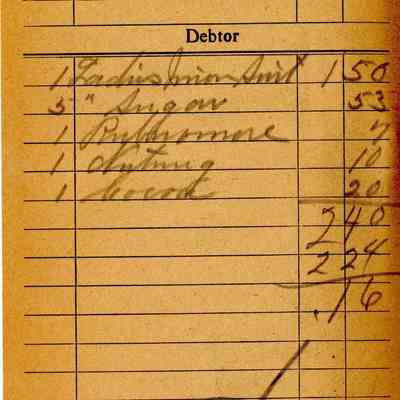 Debtor
1 Ladies Union Suit 1 50
5 " Sugar 53
1 7
1 Nutmeg 10
1 Cocoa 20
2 40
2 24
.16